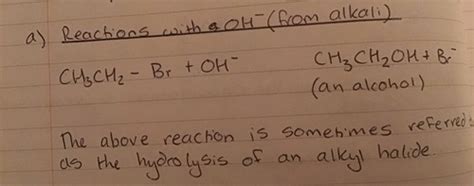 a) Reactions with OH⁻ (from alkali)
CH₃CH₂ - Br + OH⁻ CH₃CH₂OH + Br⁻
(an alcohol)
The above reaction is sometimes referred
as the hydrolysis of an alkyl halide.